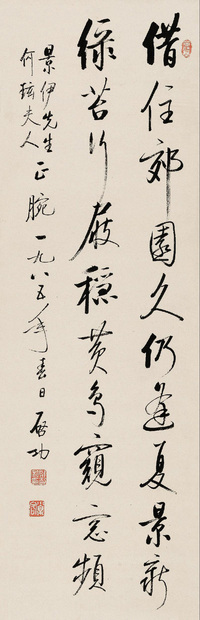 借住郊園久仍逢夏景新
綠苔行屐穩黃鳥窺窓頻
景伊先生
何璓夫人 正腕 一九八五年春日 启功